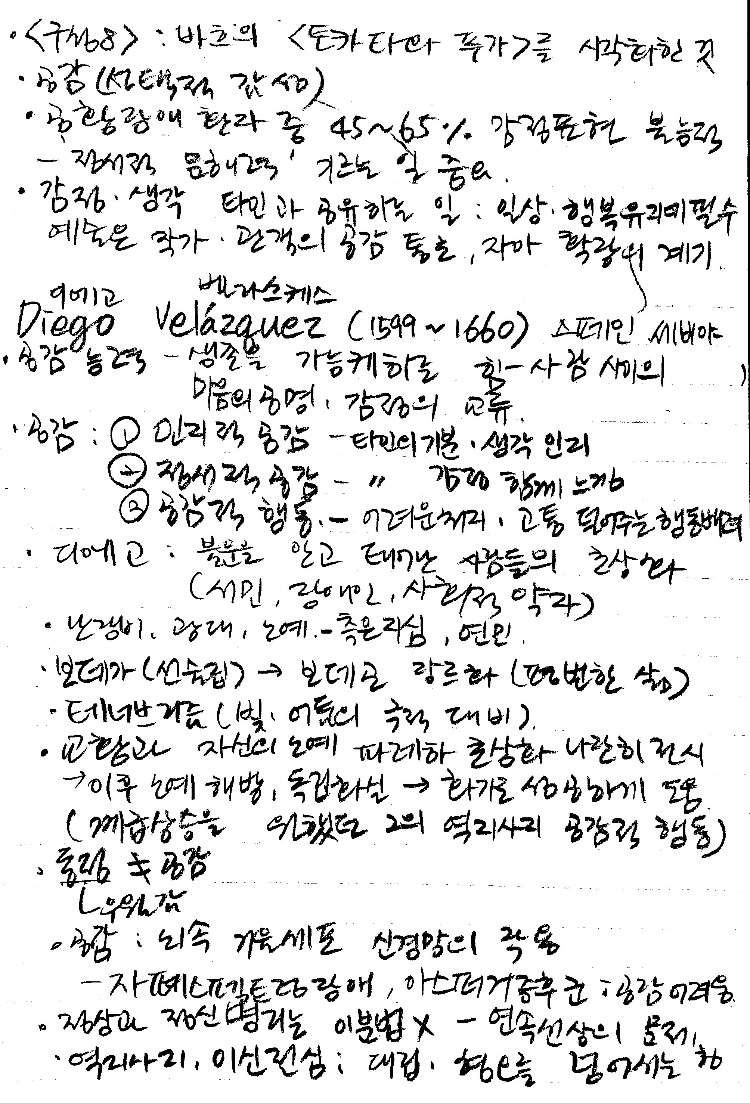 · <구성8> : 바흐의 <토카타와 푸가>를 시각화한 것
· 공감 (선택적 감성)
· 공황장애 환자 중 45~65% 감정표현 불능적
- 정서적 문해력, 키우는 일 중요.
· 감정·생각 타인과 공유하는 일 : 일상·행복유지에 필수
예술은 작가·관객의 공감 통로, 자아 확장의 계기.
디에고 벨라스케스
Diego Velázquez (1599~1660) 스페인 세비야
· 공감 능력 - 생존을 가능케하는 힘 - 사람 사이의
마음의 공명, 감정의 교류.
· 공감 : ① 인지적 공감 - 타인의 기분·생각 인지
② 정서적 공감 - 〃 감정 함께 느낌
③ 공감적 행동 - 어려운처지, 고통 덜어주는 행동배려
· 디에고 : 불운을 안고 태어난 사람들의 초상화
(서민, 장애인, 사회적 약자)
· 난쟁이, 광대, 노예 - 측은지심, 연민.
· 보데가(선술집) → 보데곤 장르화 (평범한 삶)
· 테네브리즘 (빛·어둠의 극적 대비)
· 교황과 자신의 노예 파레하 초상화 나란히 전시
→ 이후 노예 해방, 독립화실 → 화가로 성공하게 도움
(계급상승을 위했던 그의 역지사지 공감적 행동)
· 동정 ≠ 공감
ㄴ우월감
· 공감 : 뇌속 거울세포 신경망의 작용
- 자폐스펙트럼장애, 아스퍼거증후군 : 공감어려움
· 정상과 정신병리는 이분법 X - 연속선상의 문제,
· 역지사지, 이심전심 : 대립·혐오를 넘어서는 힘